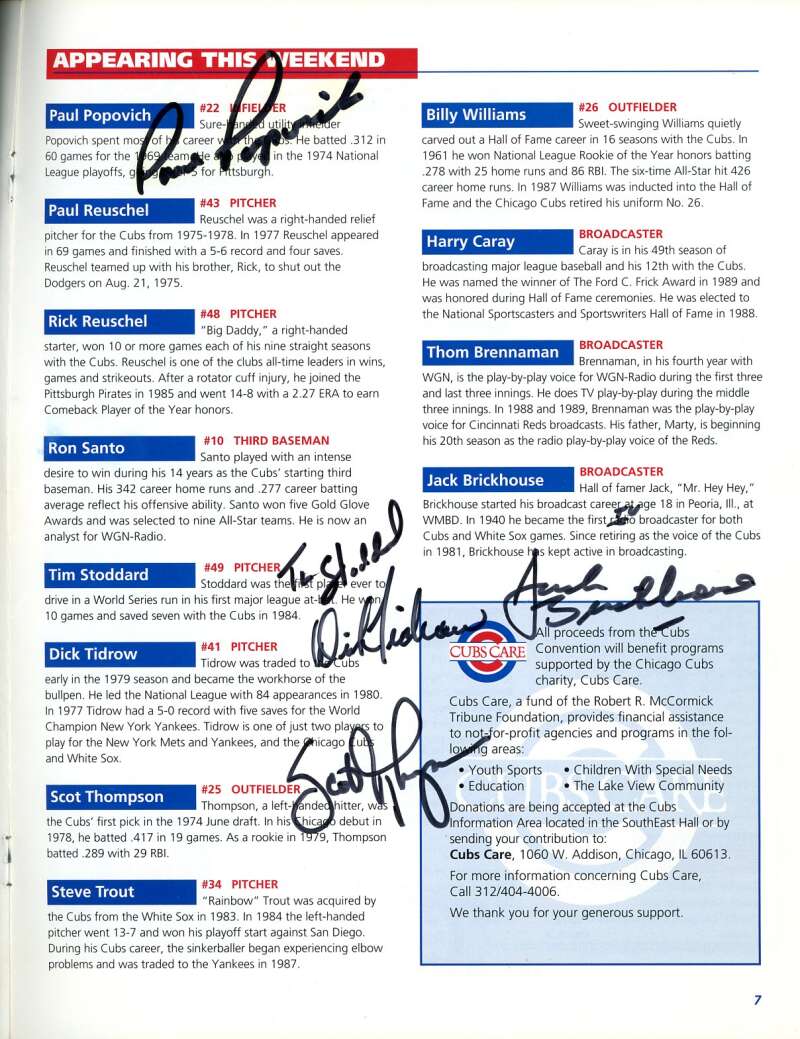 APPEARING THIS WEEKEND
Paul Popovich
#22 INFIELDER
Sure-handed utility infielder
Popovich spent most of his career with the Cubs. He batted .312 in
60 games for the 1969 team. He also played in the 1974 National
League playoffs, going 3-5 for Pittsburgh.
Paul Popovich
Paul Reuschel
#43 PITCHER
Reuschel was a right-handed relief
pitcher for the Cubs from 1975-1978. In 1977 Reuschel appeared
in 69 games and finished with a 5-6 record and four saves.
Reuschel teamed up with his brother, Rick, to shut out the
Dodgers on Aug. 21, 1975.
Rick Reuschel
#48 PITCHER
"Big Daddy," a right-handed
starter, won 10 or more games each of his nine straight seasons
with the Cubs. Reuschel is one of the clubs all-time leaders in wins,
games and strikeouts. After a rotator cuff injury, he joined the
Pittsburgh Pirates in 1985 and went 14-8 with a 2.27 ERA to earn
Comeback Player of the Year honors.
Ron Santo
#10 THIRD BASEMAN
Santo played with an intense
desire to win during his 14 years as the Cubs' starting third
baseman. His 342 career home runs and .277 career batting
average reflect his offensive ability. Santo won five Gold Glove
Awards and was selected to nine All-Star teams. He is now an
analyst for WGN-Radio.
Tim Stoddard
#49 PITCHER
Stoddard was the first player ever to
drive in a World Series run in his first major league at-bat. He won
10 games and saved seven with the Cubs in 1984.
Tim Stoddard
Dick Tidrow
#41 PITCHER
Tidrow was traded to the Cubs
early in the 1979 season and became the workhorse of the
bullpen. He led the National League with 84 appearances in 1980.
In 1977 Tidrow had a 5-0 record with five saves for the World
Champion New York Yankees. Tidrow is one of just two players to
play for the New York Mets and Yankees, and the Chicago Cubs
and White Sox.
Dick Tidrow
Scot Thompson
#25 OUTFIELDER
Thompson, a left-handed hitter, was
the Cubs' first pick in the 1974 June draft. In his Chicago debut in
1978, he batted .417 in 19 games. As a rookie in 1979, Thompson
batted .289 with 29 RBI.
Scot Thompson
Steve Trout
#34 PITCHER
"Rainbow" Trout was acquired by
the Cubs from the White Sox in 1983. In 1984 the left-handed
pitcher went 13-7 and won his playoff start against San Diego.
During his Cubs career, the sinkerballer began experiencing elbow
problems and was traded to the Yankees in 1987.
Billy Williams
#26 OUTFIELDER
Sweet-swinging Williams quietly
carved out a Hall of Fame career in 16 seasons with the Cubs. In
1961 he won National League Rookie of the Year honors batting
.278 with 25 home runs and 86 RBI. The six-time All-Star hit 426
career home runs. In 1987 Williams was inducted into the Hall of
Fame and the Chicago Cubs retired his uniform No. 26.
Harry Caray
BROADCASTER
Caray is in his 49th season of
broadcasting major league baseball and his 12th with the Cubs.
He was named the winner of The Ford C. Frick Award in 1989 and
was honored during Hall of Fame ceremonies. He was elected to
the National Sportscasters and Sportswriters Hall of Fame in 1988.
Thom Brennaman
BROADCASTER
Brennaman, in his fourth year with
WGN, is the play-by-play voice for WGN-Radio during the first three
and last three innings. He does TV play-by-play during the middle
three innings. In 1988 and 1989, Brennaman was the play-by-play
voice for Cincinnati Reds broadcasts. His father, Marty, is beginning
his 20th season as the radio play-by-play voice of the Reds.
Jack Brickhouse
BROADCASTER
Hall of famer Jack, "Mr. Hey Hey,"
Brickhouse started his broadcast career at age 18 in Peoria, Ill., at
WMBD. In 1940 he became the first radio broadcaster for both
Cubs and White Sox games. Since retiring as the voice of the Cubs
in 1981, Brickhouse has kept active in broadcasting.
Jack
Brickhouse
CUBS CARE
All proceeds from the Cubs
Convention will benefit programs
supported by the Chicago Cubs
charity, Cubs Care.
Cubs Care, a fund of the Robert R. McCormick
Tribune Foundation, provides financial assistance
to not-for-profit agencies and programs in the fol-
lowing areas:
• Youth Sports • Children With Special Needs
• Education • The Lake View Community
Donations are being accepted at the Cubs
Information Area located in the SouthEast Hall or by
sending your contribution to:
Cubs Care, 1060 W. Addison, Chicago, IL 60613.
For more information concerning Cubs Care,
Call 312/404-4006.
We thank you for your generous support.
CUBS CARE
7